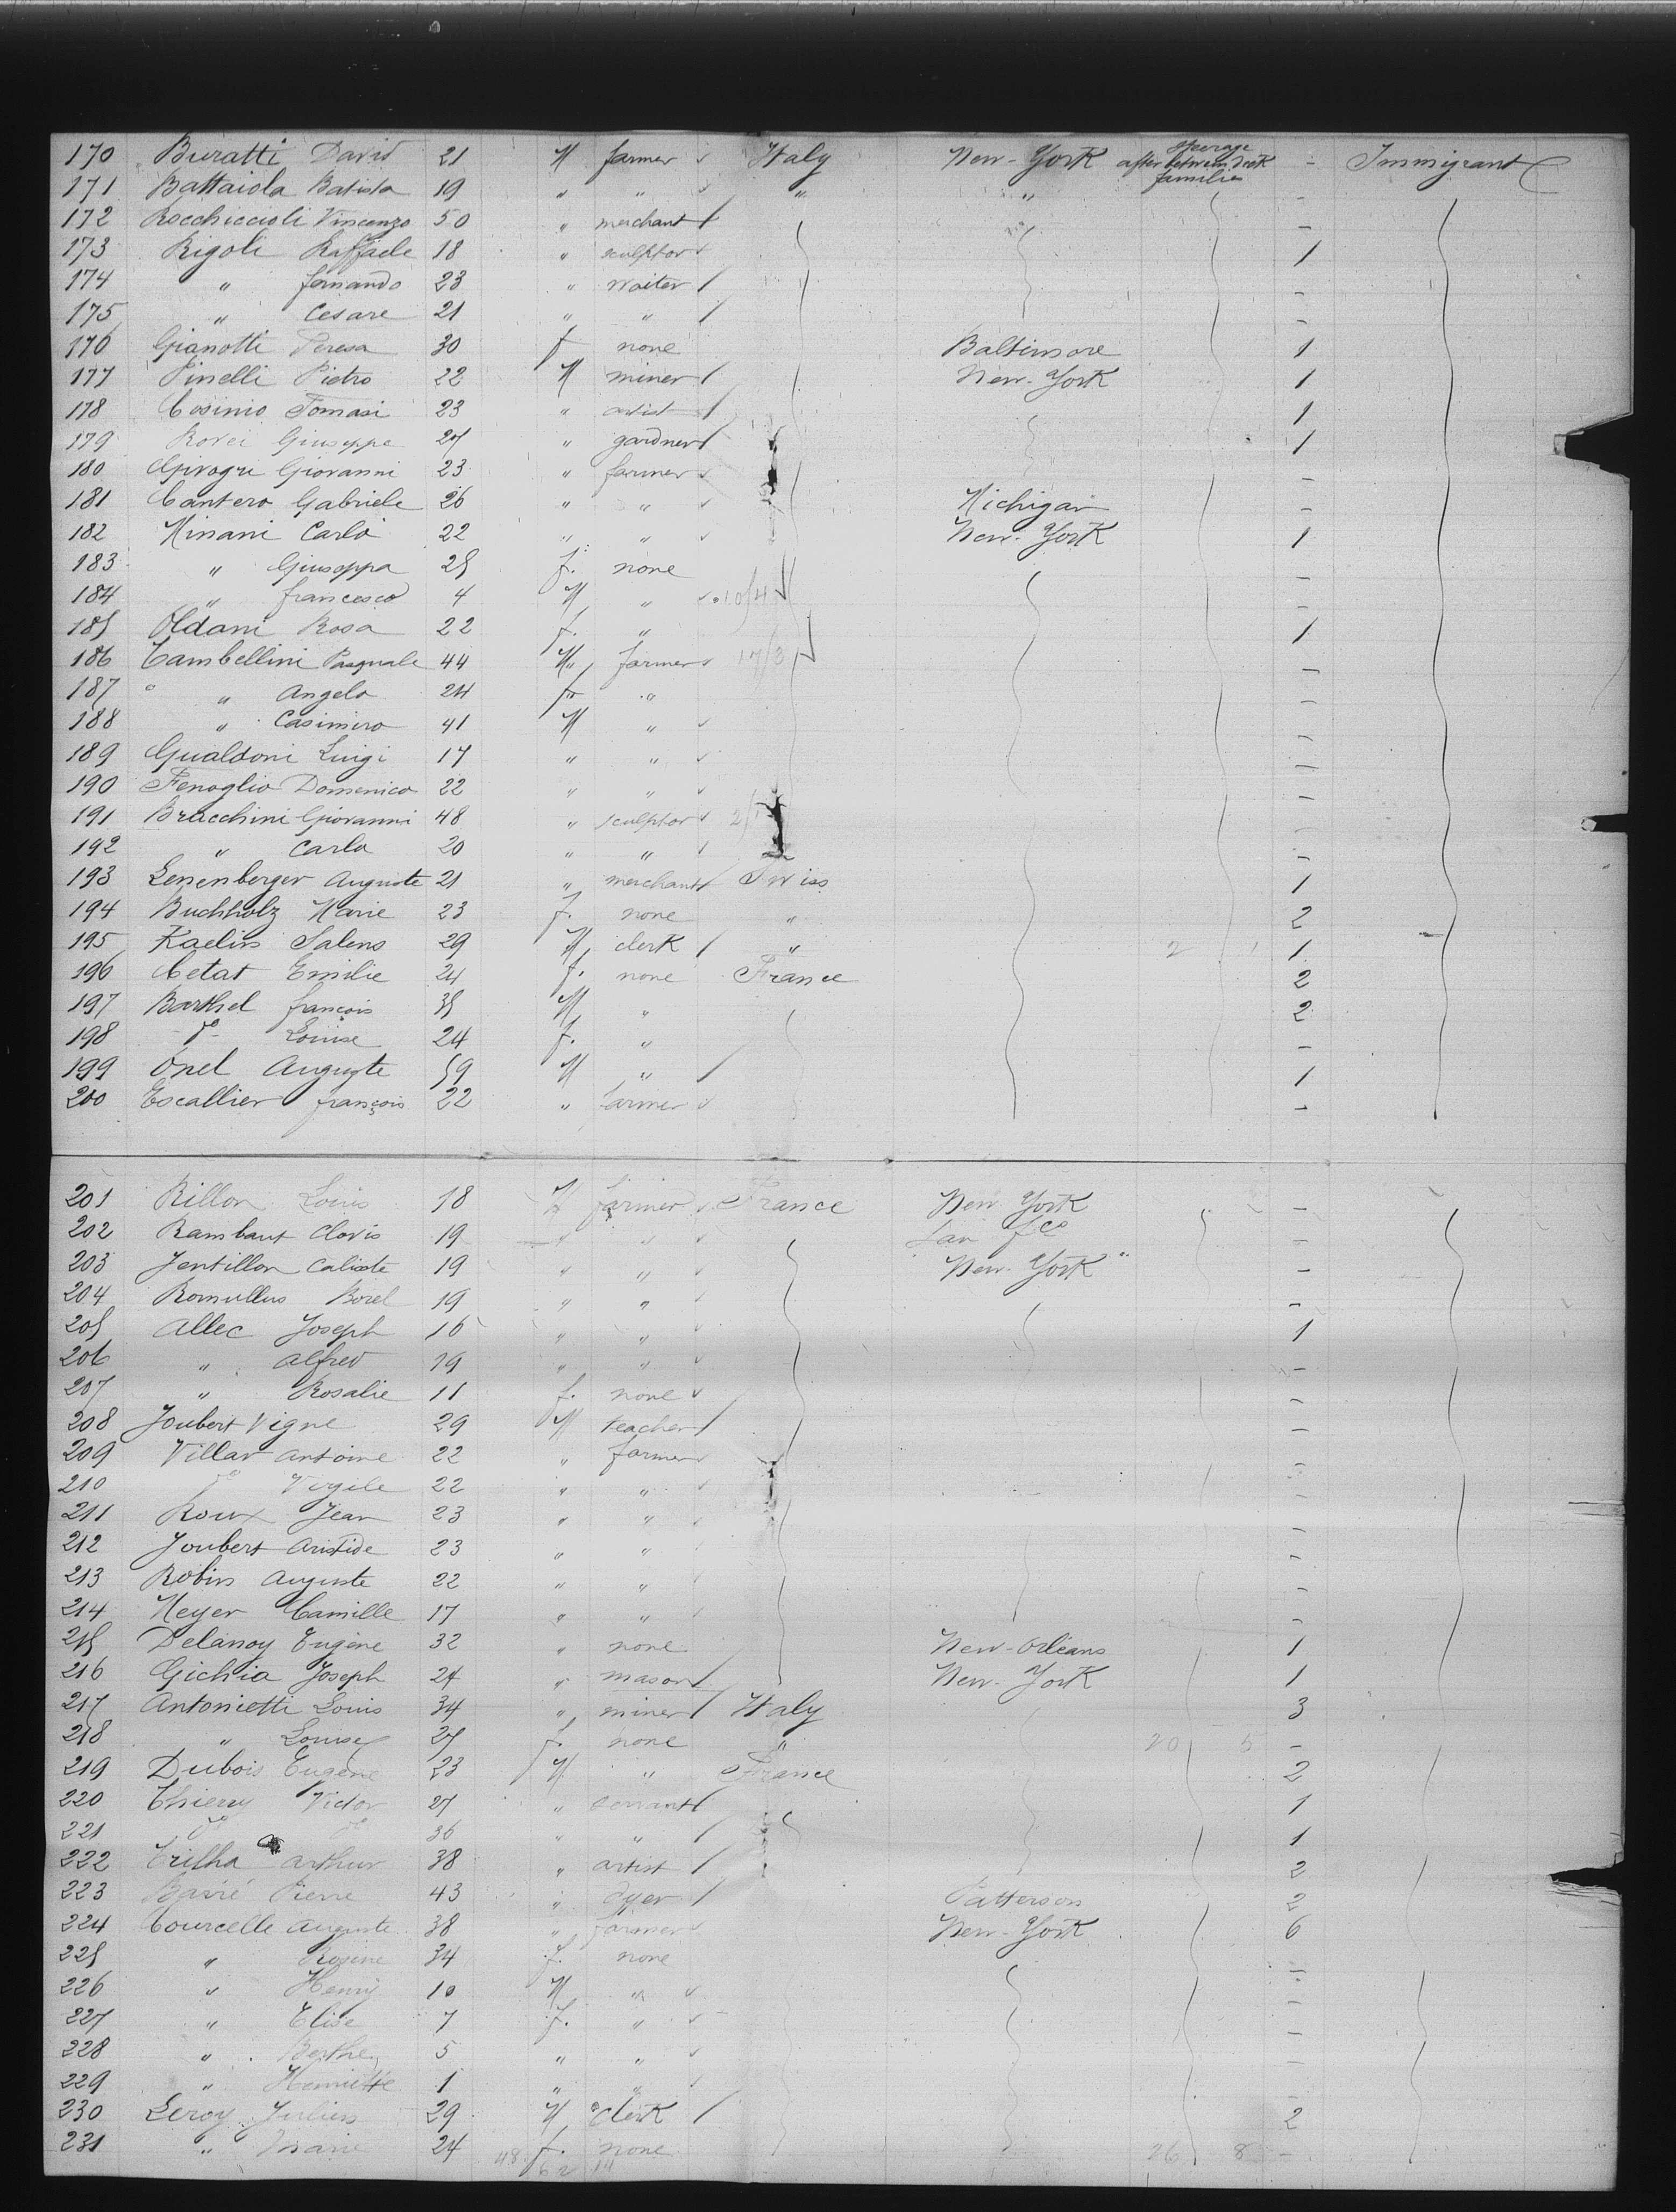 170 Buratti David 21 M farmer Italy New-York steerage after between deck families - Immigrant
171 Battaiola Batista 19 " " " " -
172 Rocchiccioli Vincenzo 50 " merchant -
173 Rigoli Raffaele 18 " sculptor 1
174 " fernando 23 " waiter -
175 " Cesare 21 " " -
176 Gianotti Teresa 30 f none Baltimore 1
177 Pinelli Pietro 22 M miner New-York 1
178 Cosinio Tomasi 23 " artist 1
179 Rovei Giuseppe 27 " gardner 1
180 Giovanni 23 " farmer -
181 Cantero Gabriele 26 " " Michigan -
182 Minani Carlo 22 " " New-York 1
183 " Giuseppa 25 f. none -
184 " francesco 4 M " 10/4 -
185 Oldani Rosa 22 f. " 1
186 Tambellini Pasquale 44 M farmer 17/3 -
187 " Angela 24 f " -
188 " Casimiro 41 M " -
189 Gualdoni Luigi 17 " " -
190 Fenoglio Domenico 22 " " -
191 Bracchini Giovanni 48 " sculptor -
192 " Carlo 20 " " -
193 Lenenberger Auguste 21 " merchant Swiss 1
194 Buchholz Marie 23 f. none " 2
195 Kaelin Salens 29 M clerk " 2 1 1
196 Cetat Emilie 24 f. none France 2
197 Barthel françois 35 M " 2
198 do Louise 24 f. " -
199 Onel Auguste 59 M " 1
200 Escallier françois 22 " farmer -
201 Rillon Louis 18 M farmer France New York -
202 Rambaut Clovis 19 " " San fco -
203 Jentillon Calixte 19 " " New-York -
204 Romullus Borel 19 " " -
205 Allec Joseph 16 " " 1
206 " Alfred 19 " " -
207 " Rosalie 11 f. none -
208 Joubert Vigne 29 M teacher -
209 Villar Antoine 22 " farmer -
210 do Virgile 22 " "
211 Roux Jean 23 " " -
212 Joubert Aristide 23 " " -
213 Robin Auguste 22 " " -
214 Meyer Camille 17 " " -
215 Delanoy Eugène 32 " none New-Orléans 1
216 Gichia Joseph 24 " mason New-York 1
217 Antonietti Louis 34 " miner Italy 3
218 " Louise 27 f. none " 20 5 -
219 Dubois Eugène 23 M " France 2
220 Thierry Victor 27 " servant 1
221 do do 36 " " 1
222 Trilha Arthur 38 " artist 2
223 Barré Pierre 43 " dyer Patterson 2
224 Courcelle Auguste 38 " farmer New-York 6
225 " Rosine 34 f. none -
226 " Henry 10 M " -
227 " Elise 7 f. " -
228 " Berthe 5 " " -
229 " Henriette 1 " " -
230 Leroy Julien 29 M clerk 2
231 " Marie 24 f. none 26 8 -
48 62 14